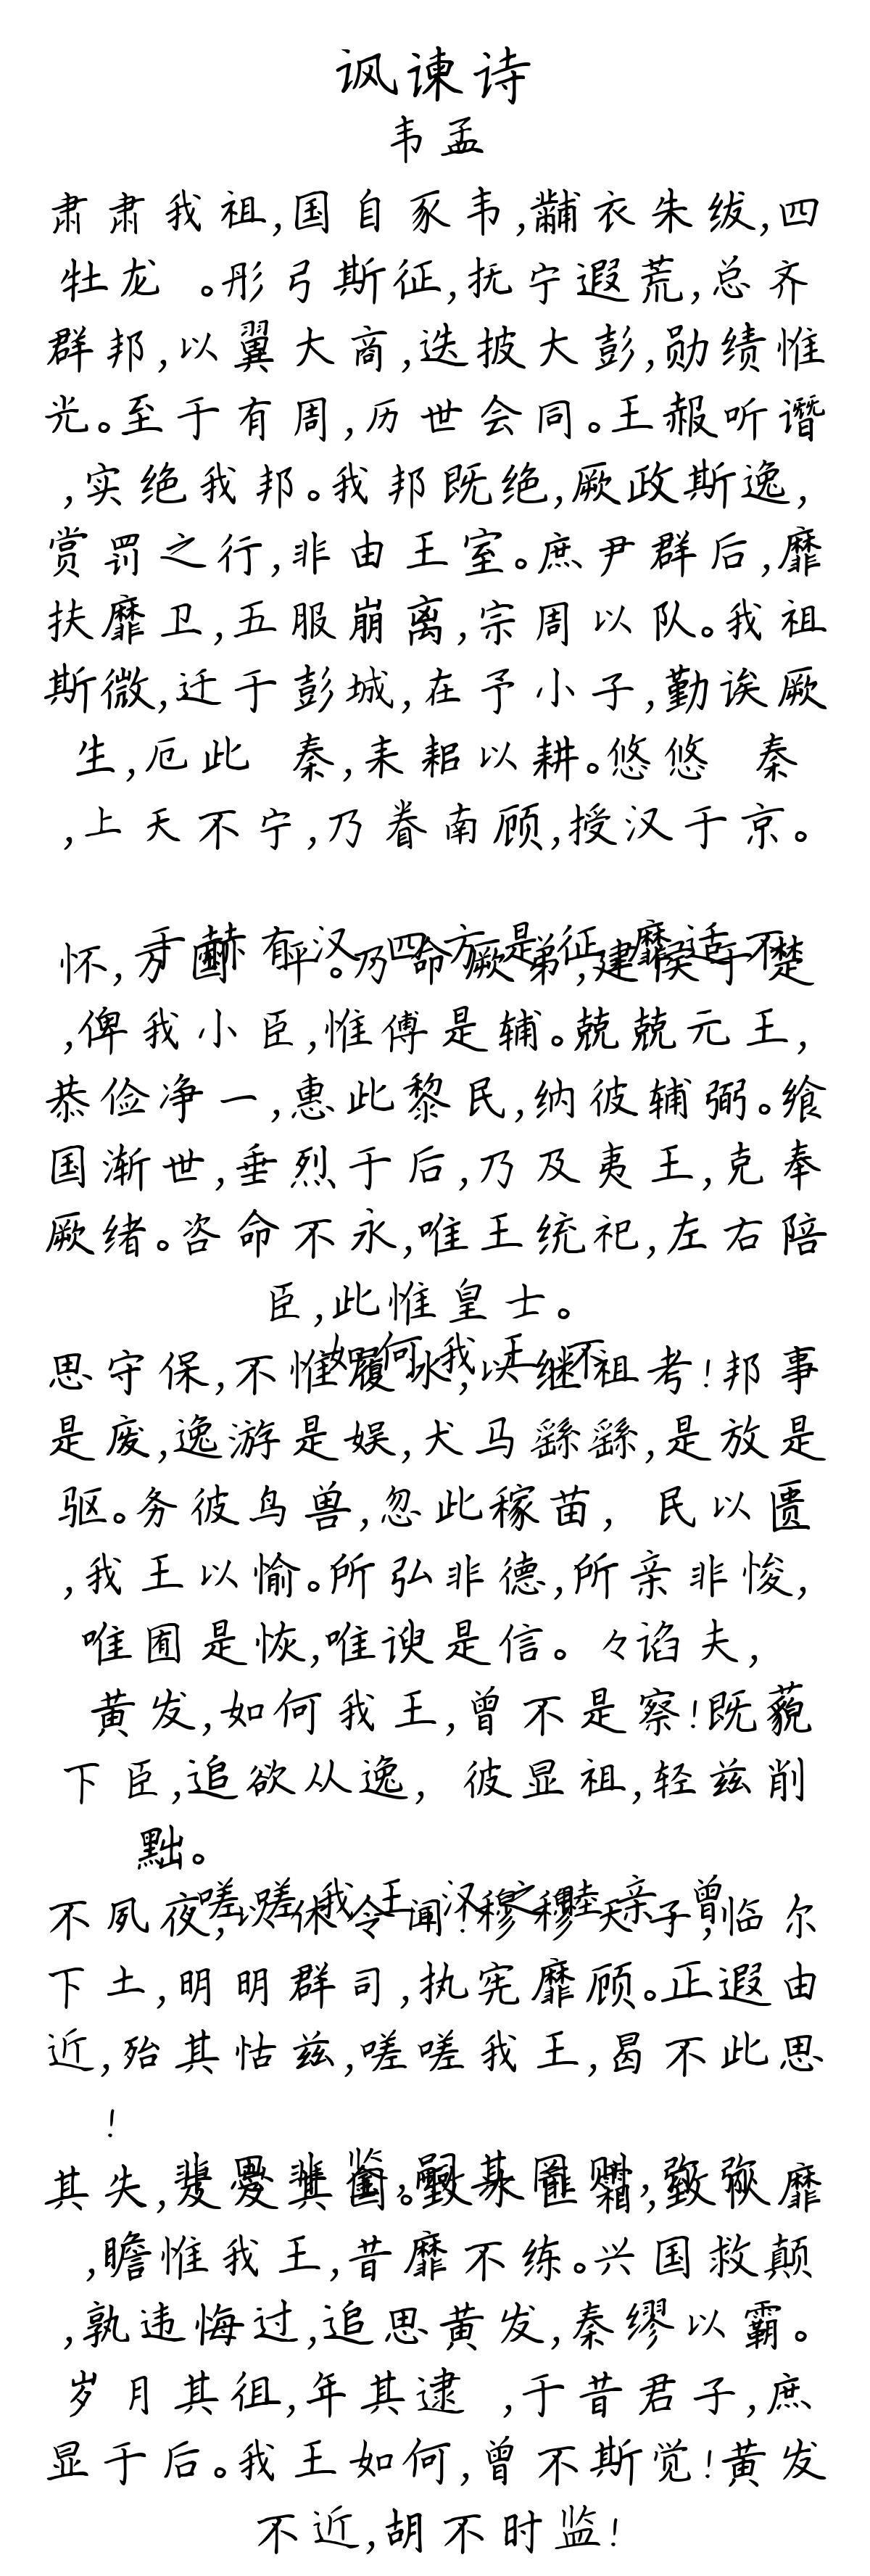 讽谏诗
韦孟
肃肃我祖,国自豕韦,黼衣朱绂,四
牡龙 。彤弓斯征,抚宁遐荒,总齐
群邦,以翼大商,迭披大彭,勋绩惟
光。至于有周,历世会同。王赧听谮
,实绝我邦。我邦既绝,厥政斯逸,
赏罚之行,非由王室。庶尹群后,靡
扶靡卫,五服崩离,宗周以队。我祖
斯微,迁于彭城,在予小子,勤诶厥
生,厄此 秦,耒耜以耕。悠悠 秦
,上天不宁,乃眷南顾,授汉于京。
于赫有汉,四方是征,靡适不
怀,万国 平。乃命厥弟,建侯于楚
,俾我小臣,惟傅是辅。兢兢元王,
恭俭净一,惠此黎民,纳彼辅弼。飨
国渐世,垂烈于后,乃及夷王,克奉
厥绪。咨命不永,唯王统祀,左右陪
臣,此惟皇士。
如何我王,不
思守保,不惟履冰,以继祖考!邦事
是废,逸游是娱,犬马繇繇,是放是
驱。务彼鸟兽,忽此稼苗, 民以匮
,我王以愉。所弘非德,所亲非悛,
唯囿是恢,唯谀是信。 々谄夫,
黄发,如何我王,曾不是察!既藐
下臣,追欲从逸, 彼显祖,轻兹削
黜。
嗟嗟我王,汉之睦亲,曾
不夙夜,以休令闻!穆穆天子,临尔
下土,明明群司,执宪靡顾。正遐由
近,殆其怙兹,嗟嗟我王,曷不此思
!
匪思匪监,嗣其罔则,弥弥
其失,岌岌其国。致冰匪霜,致坠靡
,瞻惟我王,昔靡不练。兴国救颠
,孰违悔过,追思黄发,秦缪以霸。
岁月其徂,年其逮 ,于昔君子,庶
显于后。我王如何,曾不斯觉!黄发
不近,胡不时监!